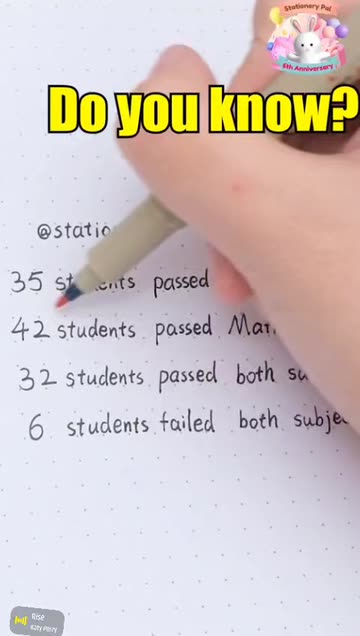 Stationery Pal
6th Anniversary
Do you know?
@static
35 students passed
42 students passed
32 students passed both
6 students failed both
Rise
Katy Perry